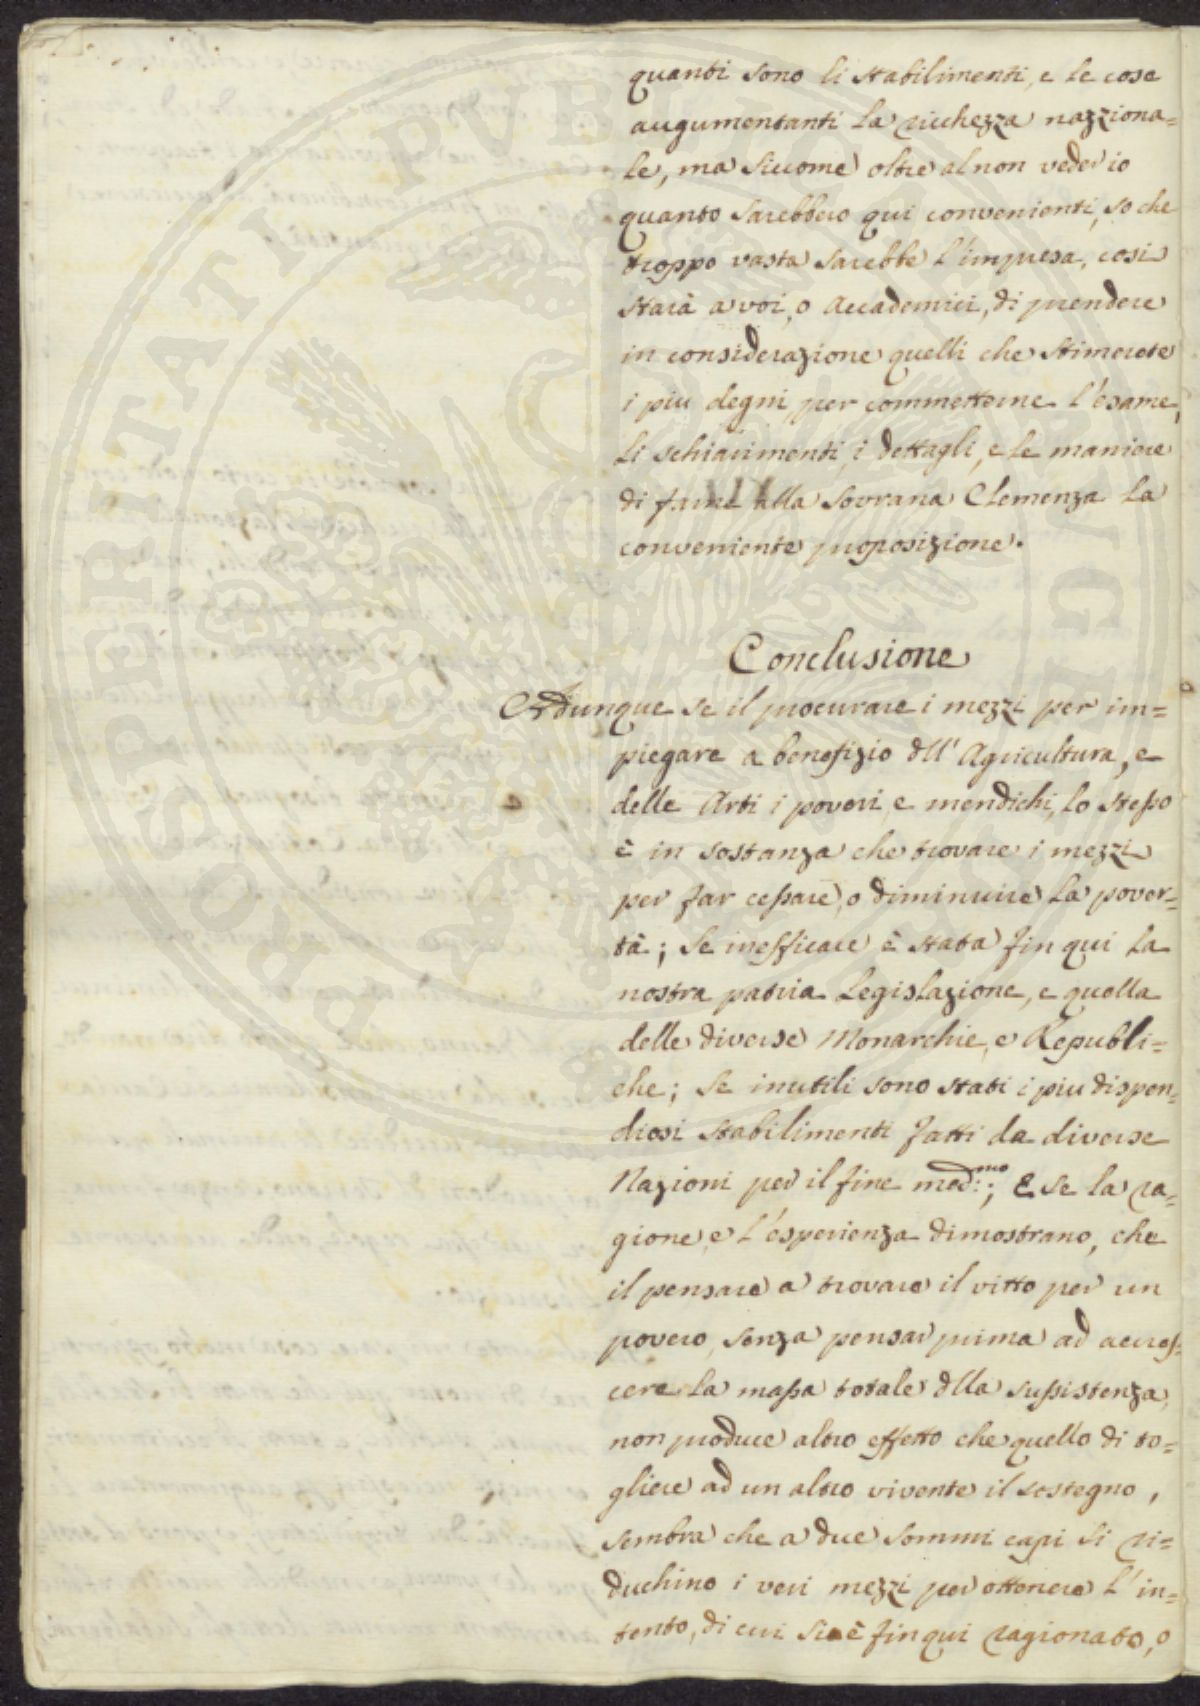 quanti sono li stabilimenti, e le cose
augumentanti la ricchezza nazziona=
le, ma siccome oltre al non veder io
quanto sarebbero qui convenienti, so che
troppo vasta sarebbe l'impresa, cosi
starà a voi, o Accademici, di prendere
in considerazione quelli che stimerete
i piu degni per commetterne l'esame,
li schiarimenti, i dettagli, e le maniere
di farne alla Sovrana Clemenza la
conveniente proposizione.
Conclusione
Adunque se il procurare i mezzi per im=
piegare a benefizio dll' Agricultura, e
delle Arti i poveri, e mendichi, lo stesso
è in sostanza che trovare i mezzi
per far cessare, o diminuire la pover=
tà; Se inefficace è stata fin qui la
nostra patria Legislazione, e quella
delle diverse Monarchie, e Republi=
che; Se inutili sono stati i piu dispen=
diosi stabilimenti fatti da diverse
Nazioni per il fine med:mo; E se la ra=
gione, e l'esperienza dimostrano, che
il pensare a trovare il vitto per un
povero, senza pensar prima ad accres=
cere la massa totale dlla sussistenza,
non produce altro effetto che quello di to=
gliere ad un altro vivente il sostegno,
sembra che a due sommi capi si ri=
duchino i veri mezzi per ottenere l'in=
tento, di cui si è fin qui ragionato, o
PROSPERITATI PUBLICAE